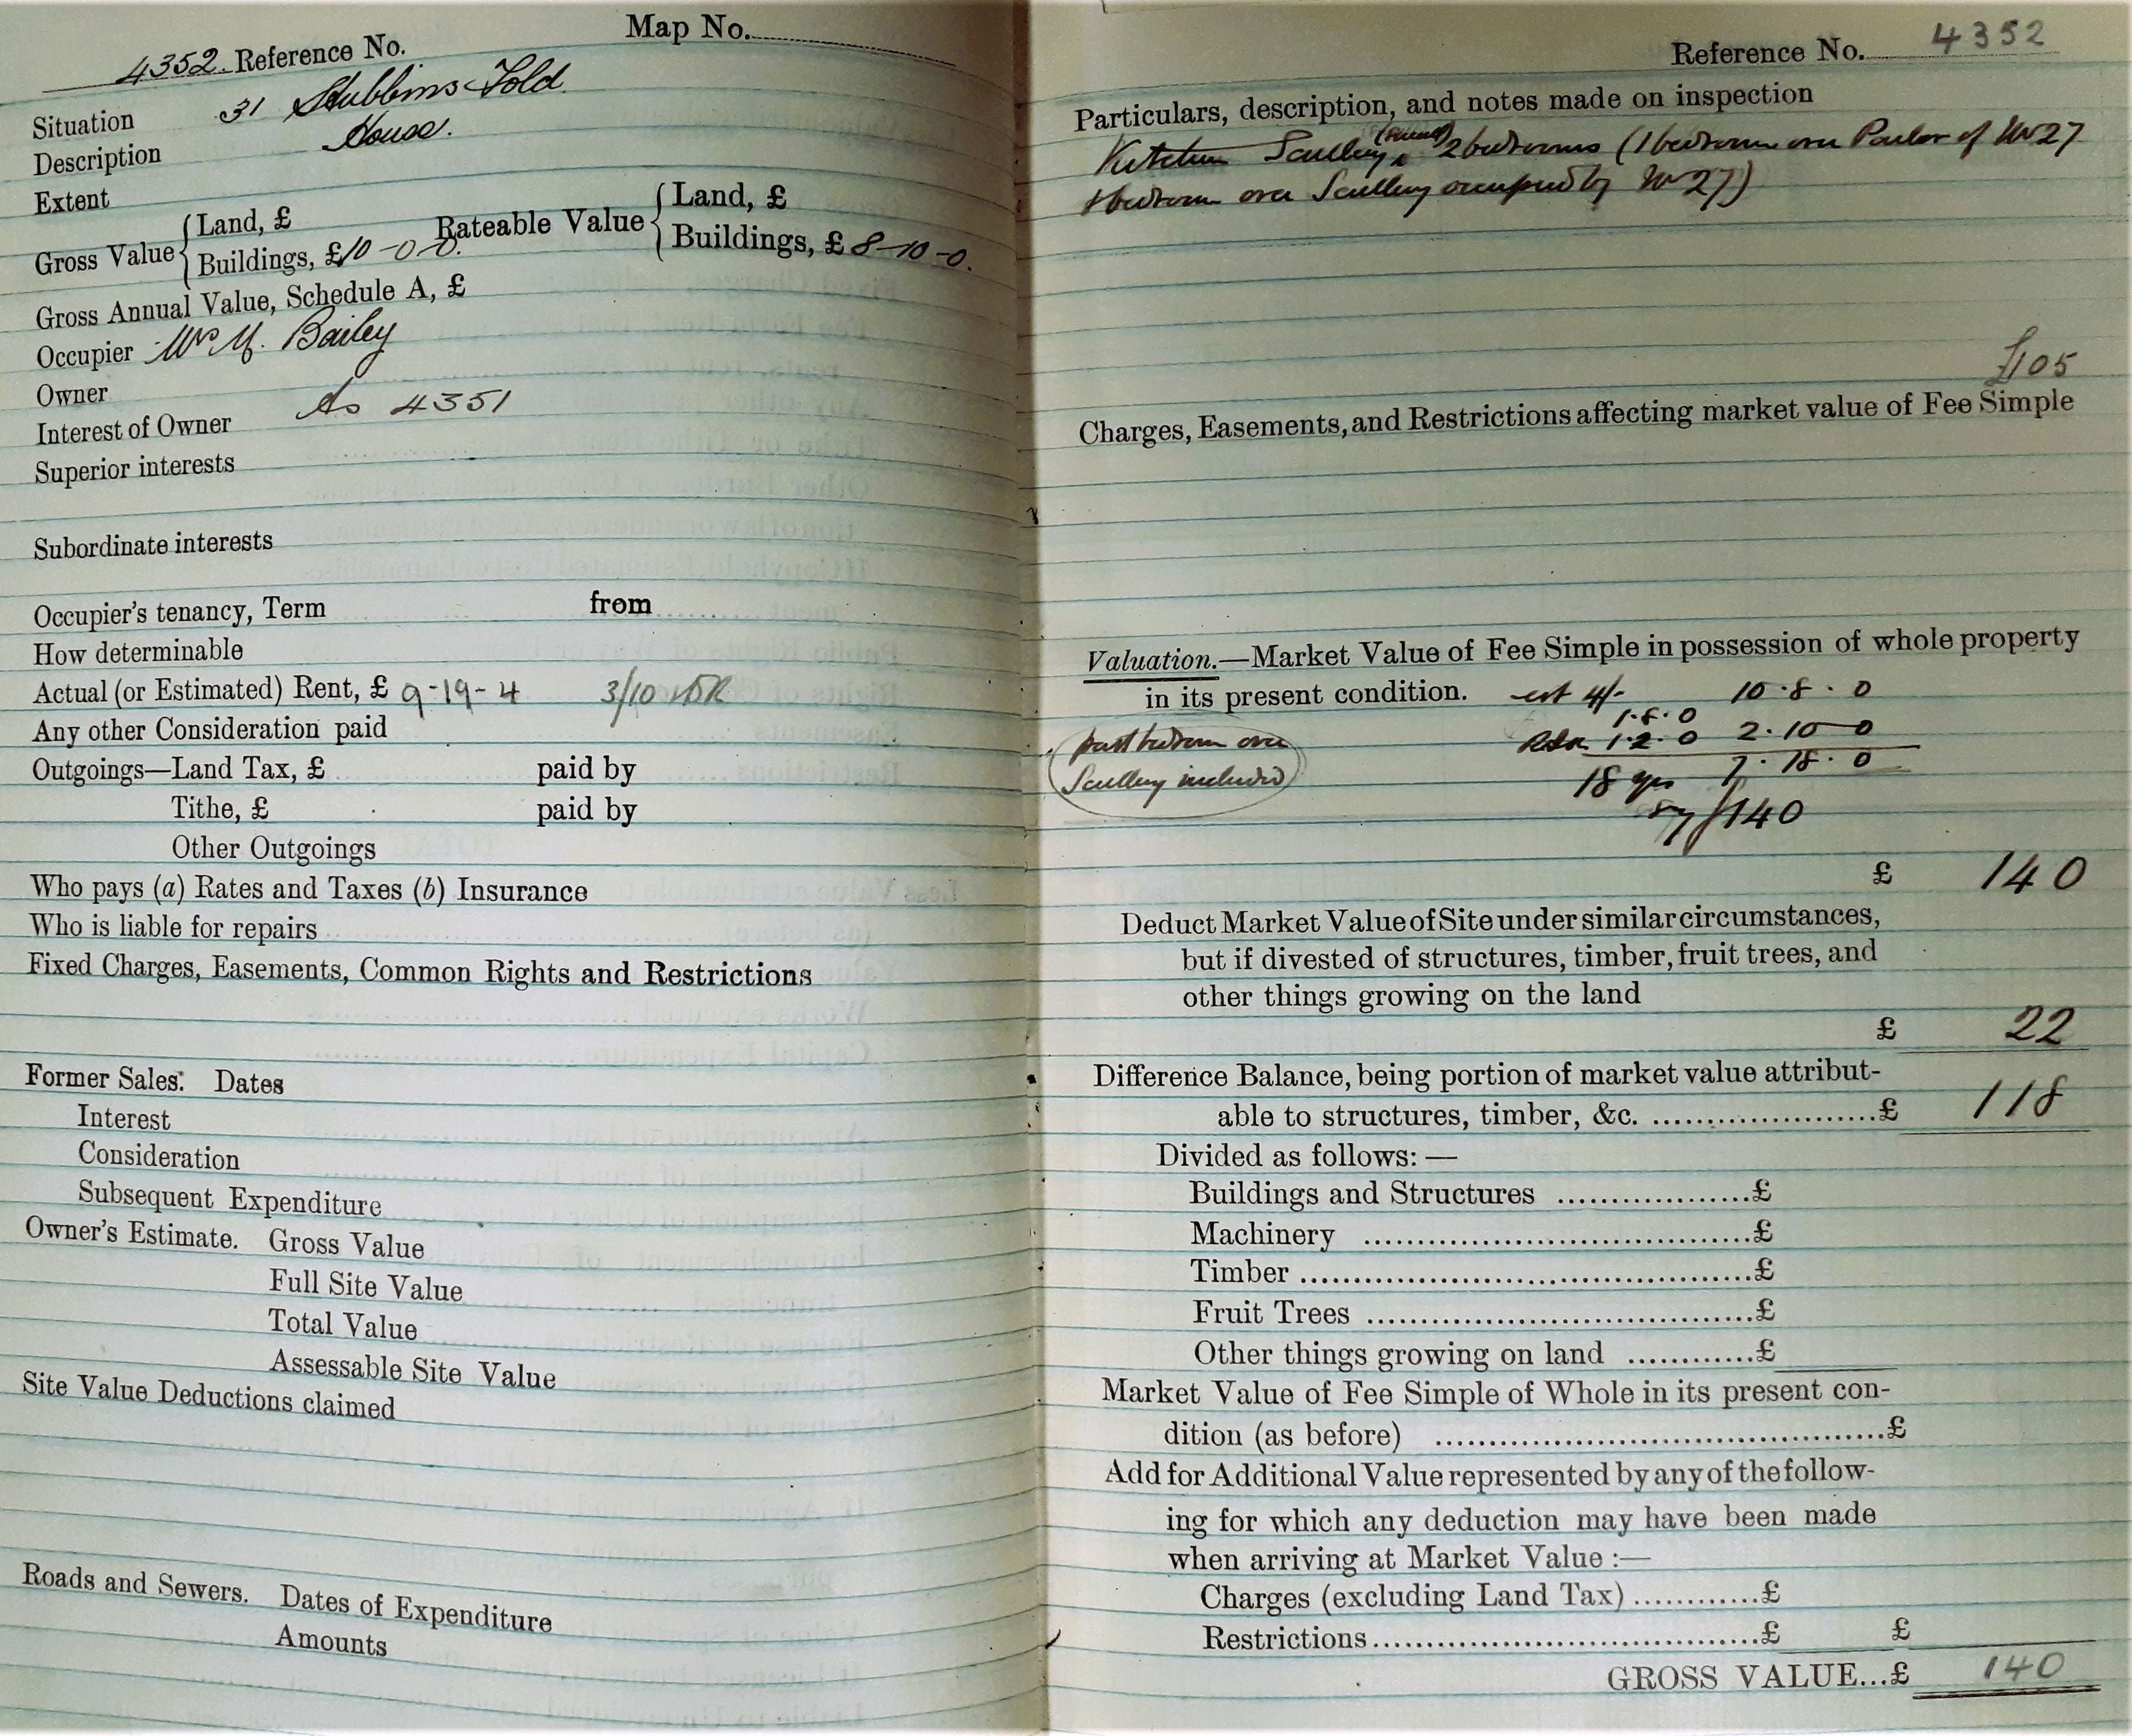 Map No.
4352. Reference No.
Situation 31 Stubbins Fold
Description House.
Extent
Gross Value { Land, £
Buildings, £10-0-0. Rateable Value { Land, £
Buildings, £8-10-0.
Gross Annual Value, Schedule A, £
Occupier Mrs M. Bailey
Owner
Interest of Owner As 4351
Superior interests
Subordinate interests
Occupier's tenancy, Term from
How determinable
Actual (or Estimated) Rent, £ 9-19-4 3/10
Any other Consideration paid
Outgoings—Land Tax, £ paid by
Tithe, £ paid by
Other Outgoings
Who pays (a) Rates and Taxes (b) Insurance
Who is liable for repairs
Fixed Charges, Easements, Common Rights and Restrictions
Former Sales. Dates
Interest
Consideration
Subsequent Expenditure
Owner's Estimate. Gross Value
Full Site Value
Total Value
Assessable Site Value
Site Value Deductions claimed
Roads and Sewers. Dates of Expenditure
Amounts
Reference No. 4352
Particulars, description, and notes made on inspection
Kitchen Scullery 2 bedrooms (1 bedroom over Parlor of No 27
1 bedroom over Scullery occupied by No 27)
£105
Charges, Easements, and Restrictions affecting market value of Fee Simple
Valuation.—Market Value of Fee Simple in possession of whole property
in its present condition. est 4/- 10.8.0
1.8.0
1.2.0 2.10 0
part bedroom over
Scullery included
18 yrs 7.18.0
£140
£ 140
Deduct Market Value of Site under similar circumstances,
but if divested of structures, timber, fruit trees, and
other things growing on the land
£ 22
Difference Balance, being portion of market value attribut-
able to structures, timber, &c. ....................£ 118
Divided as follows: —
Buildings and Structures ...................£
Machinery ......................................£
Timber .............................................£
Fruit Trees .......................................£
Other things growing on land ............£
Market Value of Fee Simple of Whole in its present con-
dition (as before) .............................................£
Add for Additional Value represented by any of the follow-
ing for which any deduction may have been made
when arriving at Market Value :—
Charges (excluding Land Tax) ............£
Restrictions......................................£ £
GROSS VALUE...£ 140